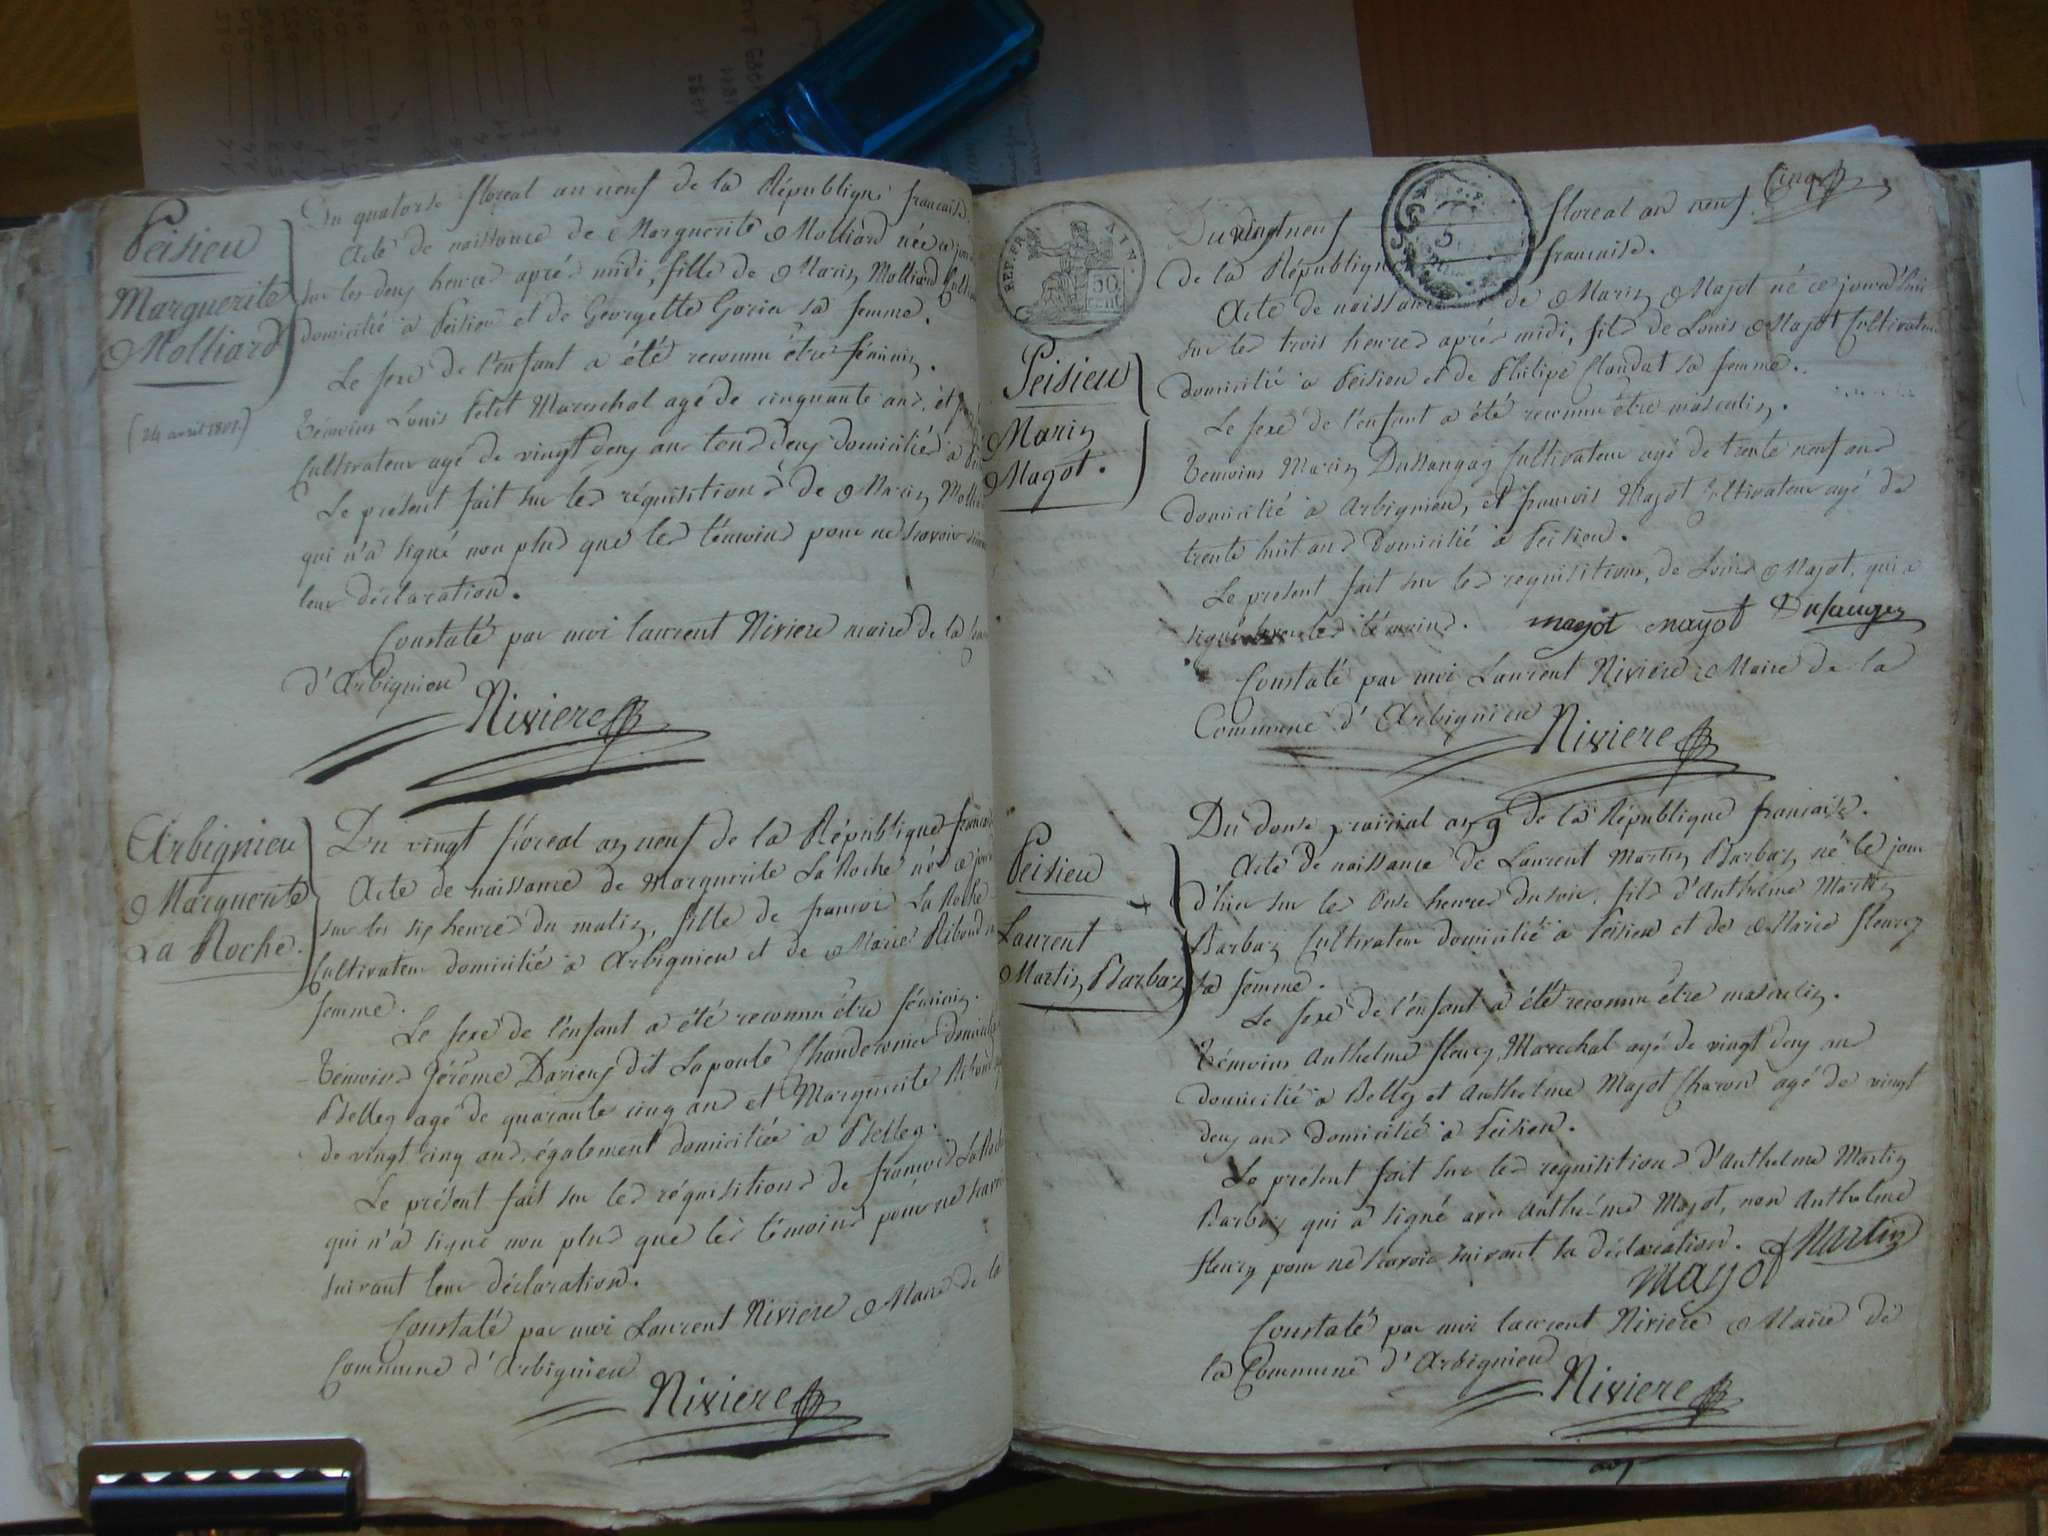 Peisieu
Marguerite
Molliard
(24 avril 1801.)
Du quatorze floreal an neuf de la République francaise.
Acte de naissance de Marguerite Molliard née ce jour
sur les deux heures aprés midi, fille de Marin Molliard Cultiv
domicilié a Peisieu et de Georgette Gorin sa femme.
Le sexe de l'enfant a été reconnu être féminin.
Témoins Louis Petit Mareschal agé de cinquante ans, et
Cultivateur agé de vingt deux ans tous deux domiciliés a
Le présent fait sur les réquisitions de Marin Molli
qui n'a signé non plus que les témoins pour ne scavoir
leur déclaration.
Constaté par moi laurent Riviere maire de la
d'Arbignieu
Riviere
Arbignieu
Marguerite
La Roche.
Du vingt floreal an neuf de la République francai
Acte de naissance de Marguerite La Roche née ce jour
sur les six heures du matin, fille de francois La Roche
Cultivateur domicilié a Arbignieu et de Marie Riboud
femme.
Le sexe de l'enfant a été reconnu être féminin.
Témoins Jérôme Darieux dit Lapoule Chauderonier domicilié
Belley agé de quarante cinq ans et Marguerite
de vingt cinq ans, également domiciliée a Belley.
Le présent fait sur les réquisitions de francois La Roche
qui n'a signé non plus que les témoins pour ne scavoi
suivant leur déclaration.
Constaté par moi Laurent Riviere Maire de la
Commune d'Arbignieu
Riviere
Cinq
REP. FRA
50
cent.
5
Peisieu
Marin
Majot.
Du vingt neuf floreal an neuf
de la République francaise.
Acte de naissance de Marin Majot né ce jourd'hui
sur les trois heures aprés midi, fils de Louis Majot Cultivateur
domicilié a Peisieu et de Philipe Claudat sa femme.
Le sexe de l'enfant a été reconnu être masculin.
Témoins Marin Dussaugey Cultivateur agé de trente neuf ans
domicilié a Arbignieu, et francois Majot Cultivateur agé de
trente huit ans domicilié a Peisieu.
Le present fait sur les requisitions, de Louis Majot, qui a
signé avec les témoins. mayot mayot Dusaugey
Constaté par moi Laurent Riviere Maire de la
Commune d'Arbignieu
Riviere
Peisieu
Laurent
Martin Barbaz
Du douse prairial an 9 de la République francaise.
Acte de naissance de Laurent Martin Barbaz né le jour
d'hier sur les onse heures du soir, fils d'Anthelme Martin
Barbaz Cultivateur domicilié a Peisieu et de Marie fleury
sa femme.
Le sexe de l'enfant a été reconnu être masculin.
Témoins Anthelme fleury Marechal agé de vingt deux ans
domicilié a Belley et Anthelme Majot Charon agé de vingt
deux ans domicilié a Peisieu.
Le present fait sur les requisitions d'Anthelme Martin
Barbaz qui a signé avec Anthelme Majot, non Anthelme
fleury pour ne scavoir suivant sa déclaration. Martin
mayot
Constaté par moi laurent Riviere Maire de
la Commune d'Arbignieu
Riviere